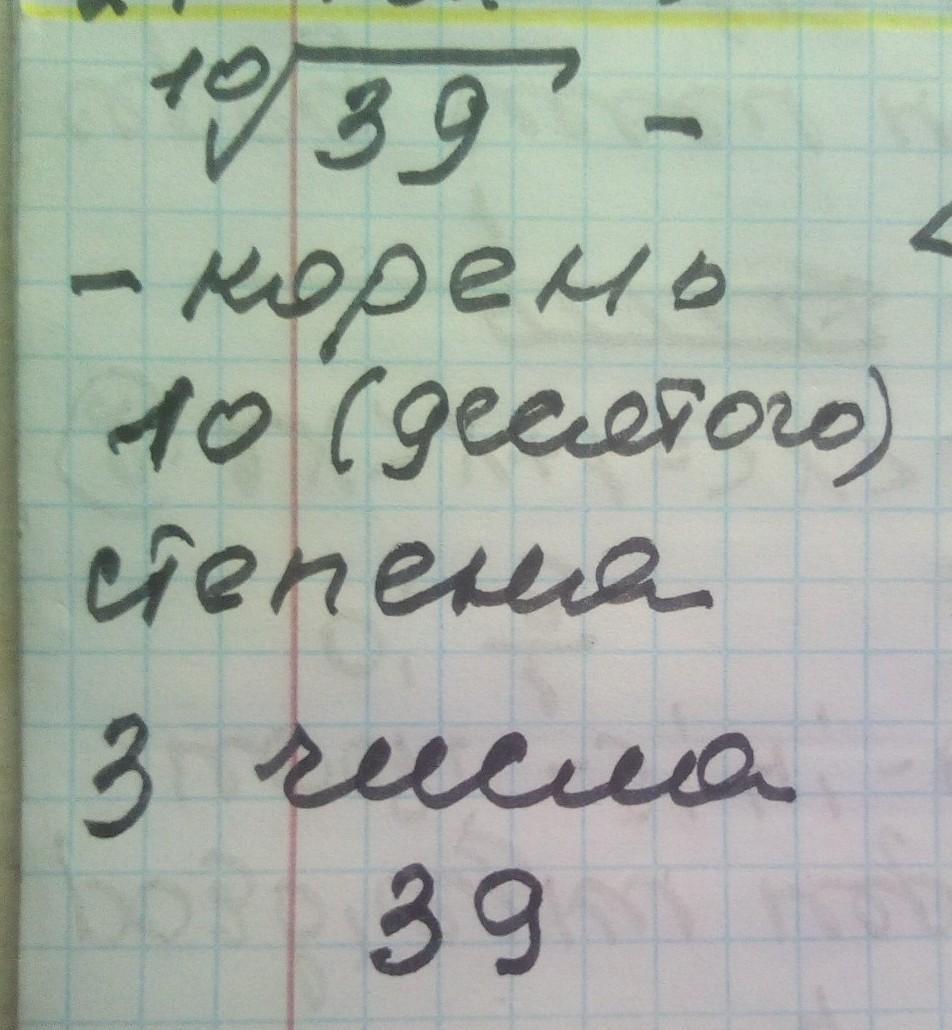 ¹⁰√39 -
- корень
10 (десятого)
степена
3 числа
39